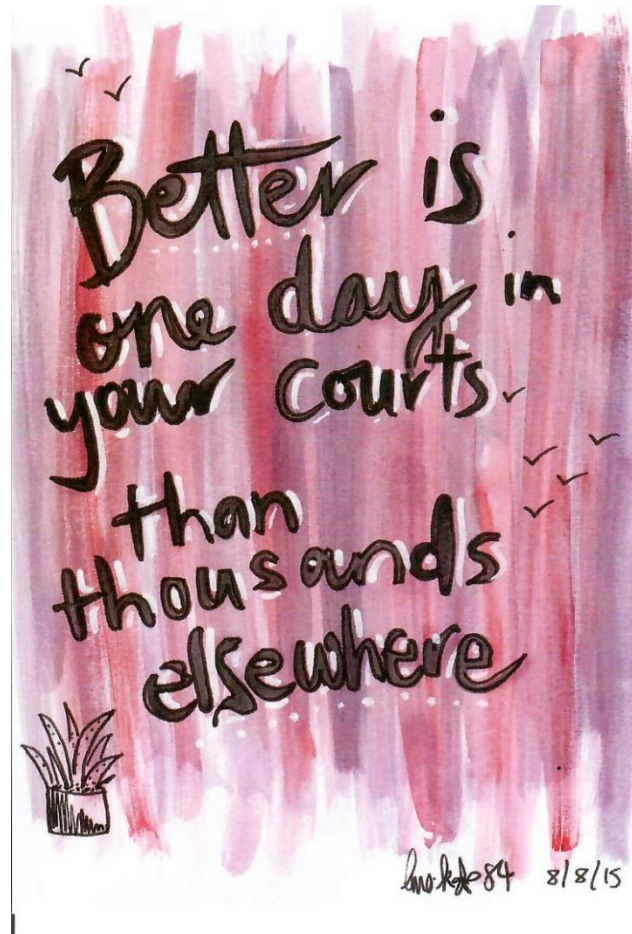 Better is
one day in
your courts
than
thousands
elsewhere
84 8/8/15